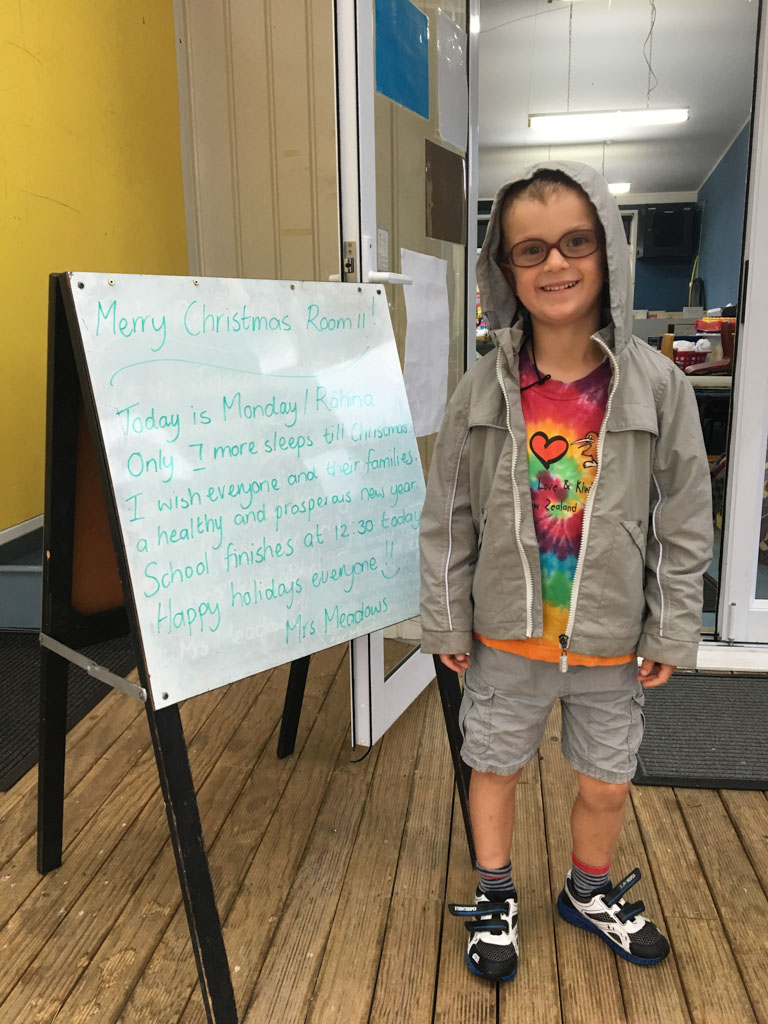 Merry Christmas Room 11!
Today is Monday / Rāhina
Only 7 more sleeps till Christmas.
I wish everyone and their families.
a healthy and prosperous new year
School finishes at 12:30 today
Happy holidays everyone!!
Mrs Meadows
Love & Kiwi
Zealand